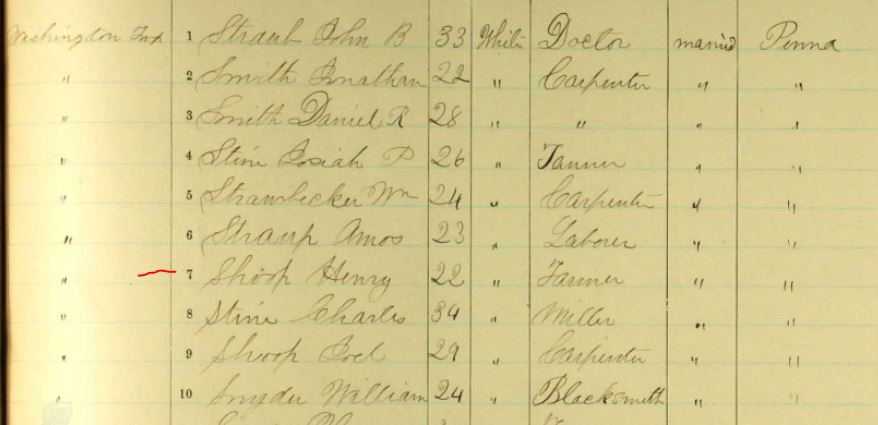 Washington Twp 1 Straub John B 33 White Doctor married Penna
" 2 Smith Jonathan 22 " Carpenter " "
" 3 Smith Daniel R 28 " " " "
" 4 Stine Josiah P 26 " Tanner " "
" 5 Strawbecker Wm 24 " Carpenter " "
" 6 Straup Amos 23 " Laborer " "
" 7 Shoop Henry 22 " Tanner " "
" 8 Stine Charles 34 " Miller " "
" 9 Shoop Joel 29 " Carpenter " "
" 10 Snyder William 24 " Blacksmith " "